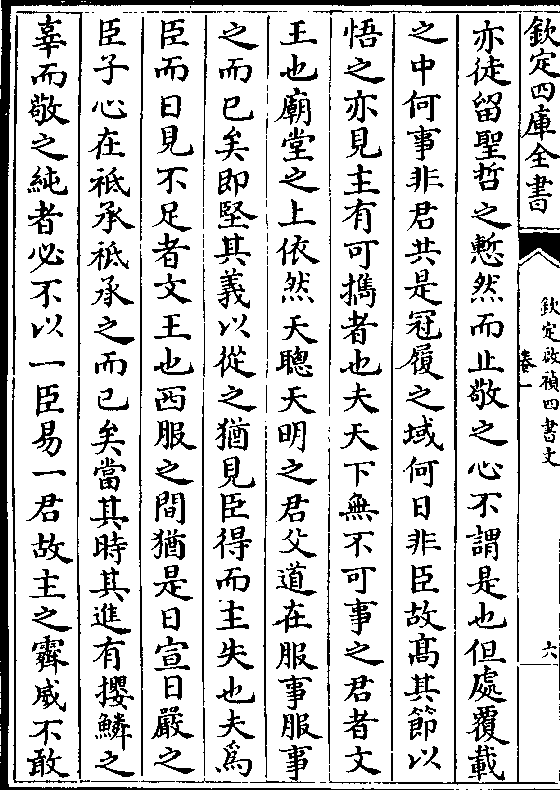 欽定四庫全書
欽定啟禎四書文
卷一
六
亦徒留聖哲之慙然而止敬之心不謂是也但處覆載
之中何事非君共是冠履之域何日非臣故髙其節以
悟之亦見主有可擕者也夫天下無不可事之君者文
王也廟堂之上依然天聰天明之君父道在服事服事
之而已矣即堅其義以從之猶見臣得而主失也夫爲
臣而日見不足者文王也西服之間猶是日宣日嚴之
臣子心在祇承祇承之而已矣當其時其進有攖鱗之
辜而敬之純者必不以一臣易一君故主之霽威不敢